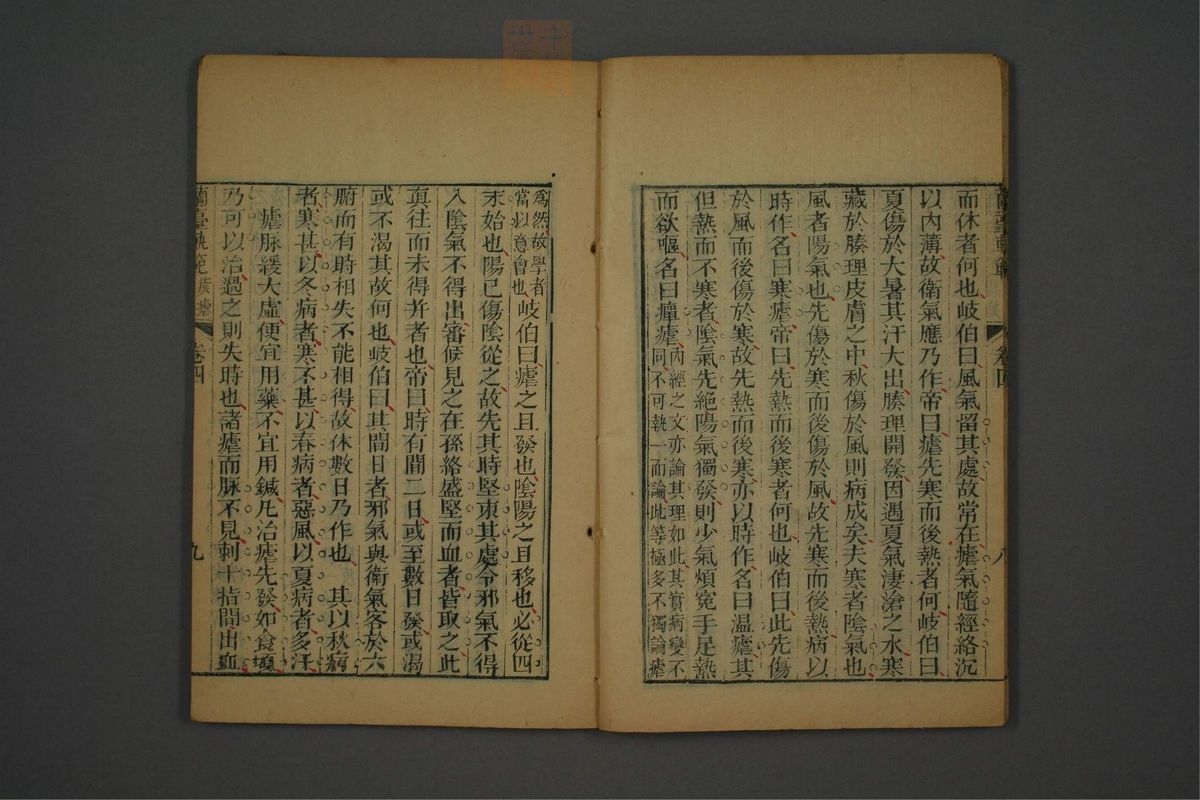 而休者何也岐伯曰風氣留其處故常在瘧氣隨經絡沉
以內薄故衛氣應乃作帝曰瘧先寒而後熱者何岐伯曰
夏傷於大暑其汗大出腠理開發因遇夏氣淒滄之水寒
藏於腠理皮膚之中秋傷於風則病成矣夫寒者陰氣也
風者陽氣也先傷於寒而後傷於風故先寒而後熱病以
時作名曰寒瘧帝曰先熱而後寒者何也岐伯曰此先傷
於風而後傷於寒故先熱而後寒亦以時作名曰温瘧其
但熱而不寒者陰氣先絕陽氣獨發則少氣煩寃手足熱
而欲嘔名曰癉瘧內經之文亦論其理如此其實病變不
同不可執一而論此等極多不獨論瘧
卷四
八
為然故學者
當以意會也岐伯曰瘧之且發也陰陽之且移也必從四
末始也陽已傷陰從之故先其時堅束其處令邪氣不得
入陰氣不得出審候見之在孫絡盛堅而血者皆取之此
真往而未得并者也帝曰時有間二日或至數日發或渴
或不渴其故何也岐伯曰其間日者邪氣與衛氣客於六
腑而有時相失不能相得故休數日乃作也 其以秋病
者寒甚以冬病者寒不甚以春病者惡風以夏病者多汗
瘧脉緩大虛便宜用藥不宜用鍼凡治瘧先發如食頃
乃可以治過之則失時也諸瘧而脉不見刺十指間出血
蘭臺軌範
卷四
九